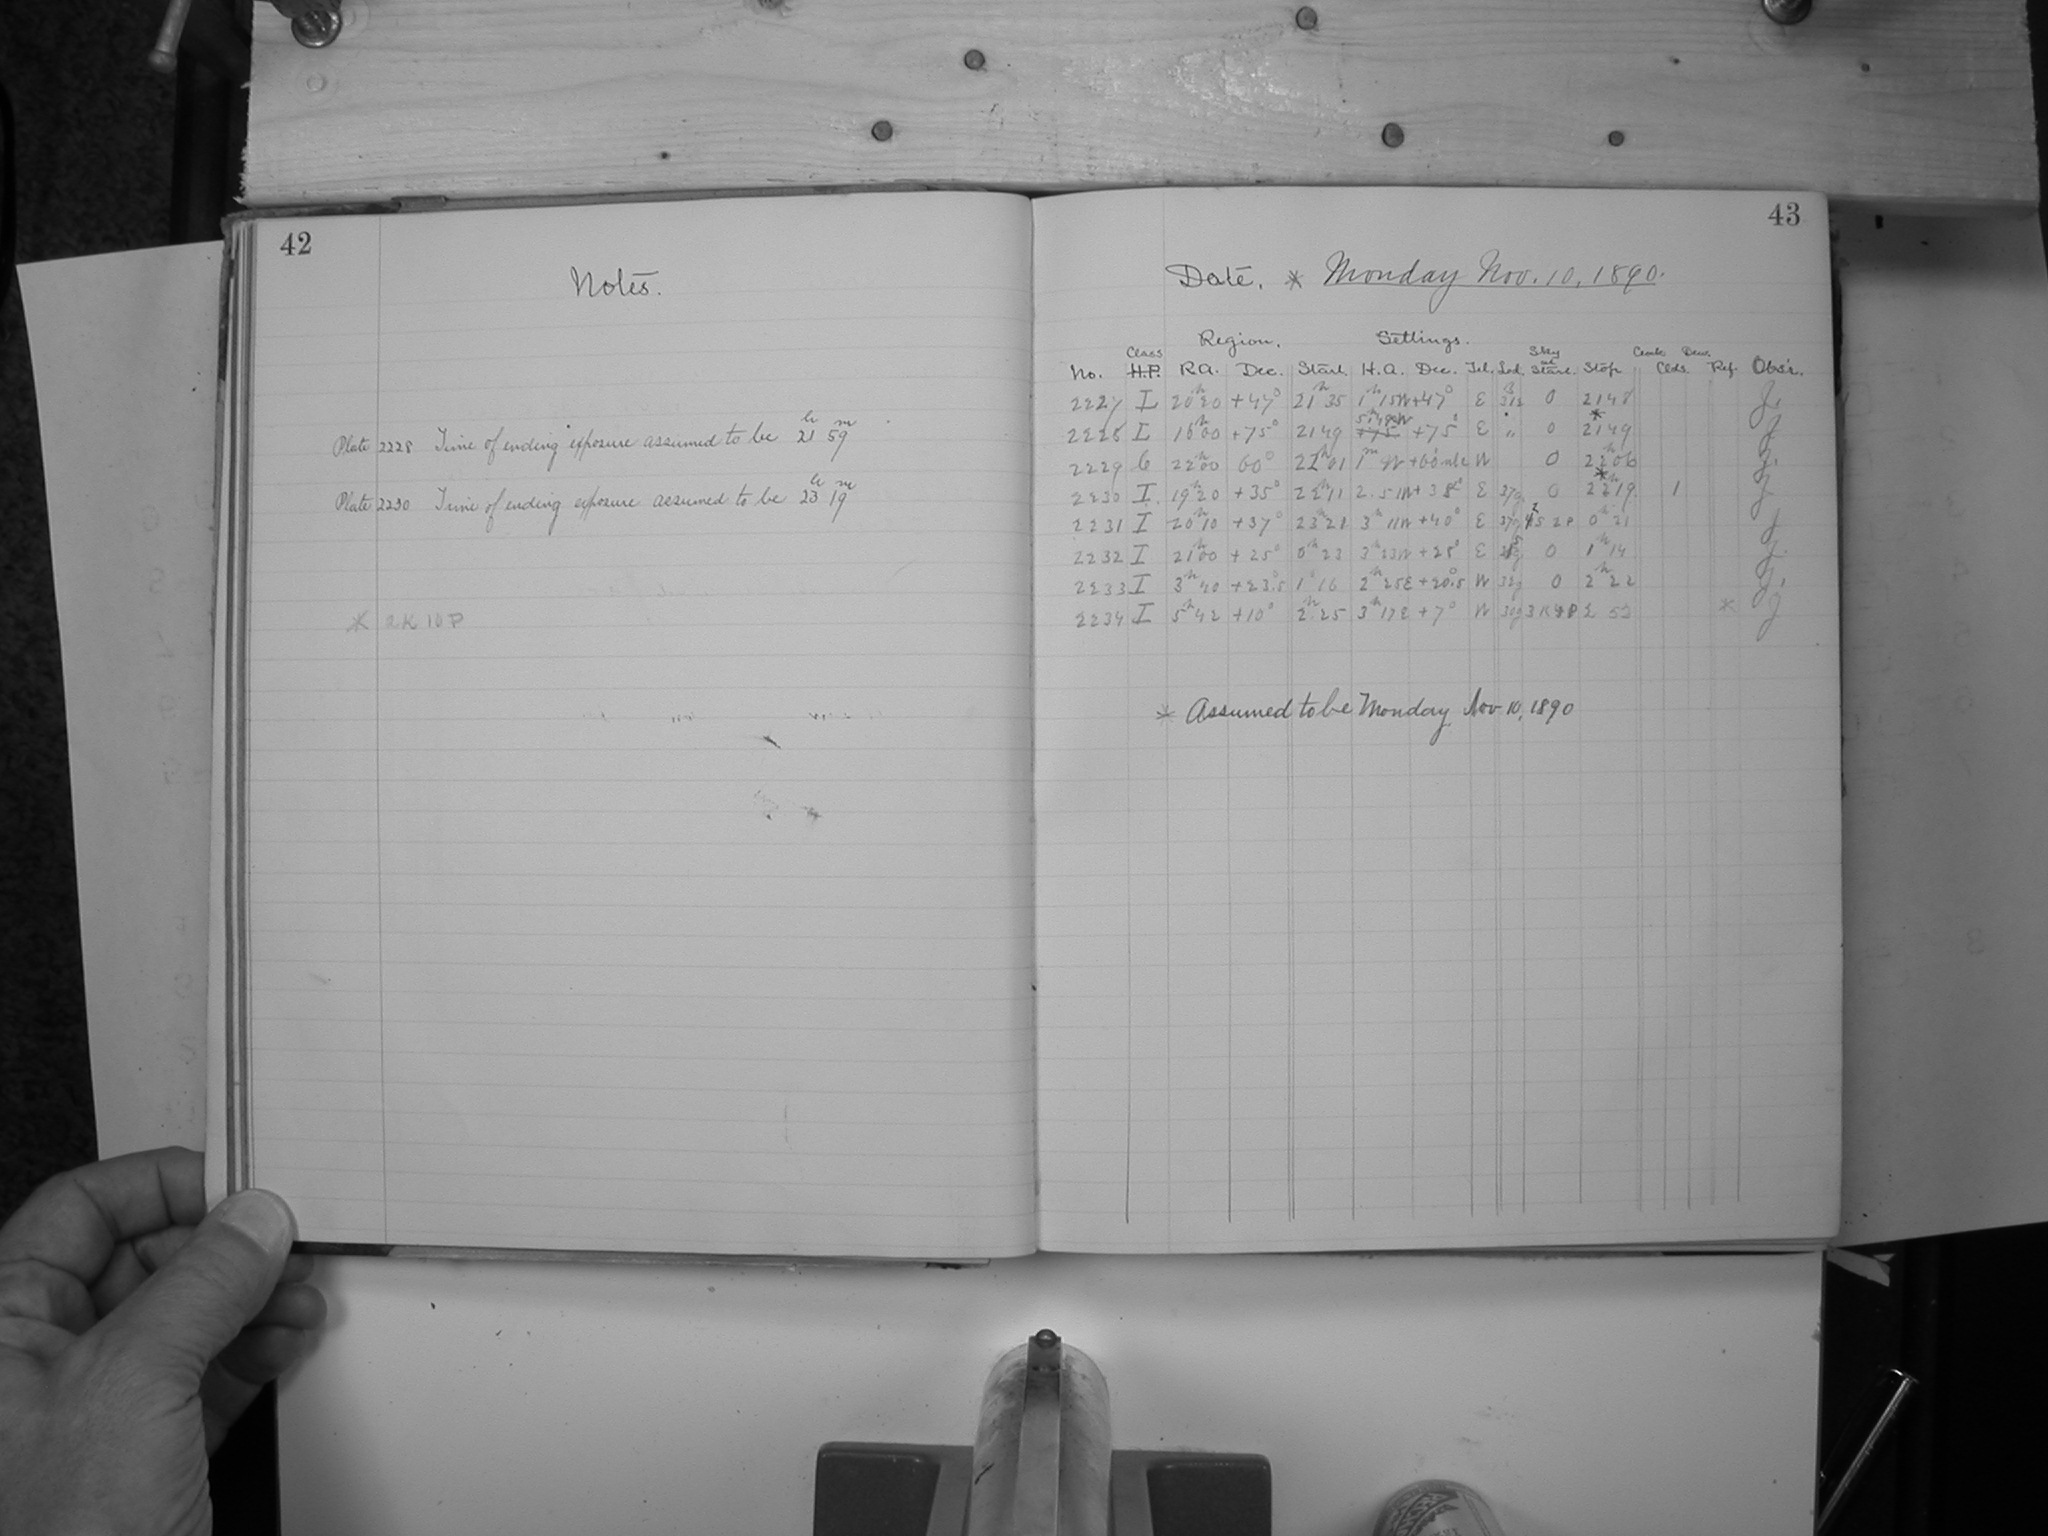 42
Notes.
Plate 2228 Time of ending exposure assumed to be 21h 59m
Plate 2230 Time of ending exposure assumed to be 23h 19m
* 2K 10P
43
Date. * Monday Nov. 10, 1890.
Region. Settings.
Class Sky at Cent. Dew.
No. H.P. R.A. Dec. Start. H.A. Dec. Tel. Led. Start. Stop Clds. Ref. Obs'r.
2227 I 20h20 +47° 21h35 1h15W +47° E 312 0 2148 J.
2228 I 16h00 +75° 2149 5h48W +75° E " 0 2149* J
2229 6 22h00 60° 22h01 1m W +60 W 0 2206 J.
2230 I 19h20 +35° 22h11 2.51W +38° E 37g 0 22h19* 1 J
2231 I 20h10 +37° 23h21 3h11W +40° E 37g 0h21 J
2232 I 21h00 +25° 0h23 3h23W +28° E 0 1h14 J.
2233 I 3h40 +23.5° 1h16 2h25E +20.5° W 32g 0 2h22 J.
2234 I 5h42 +10° 2h25 3h17E +7° W 30g 3K8P 2 53 * J
* Assumed to be Monday Nov 10, 1890